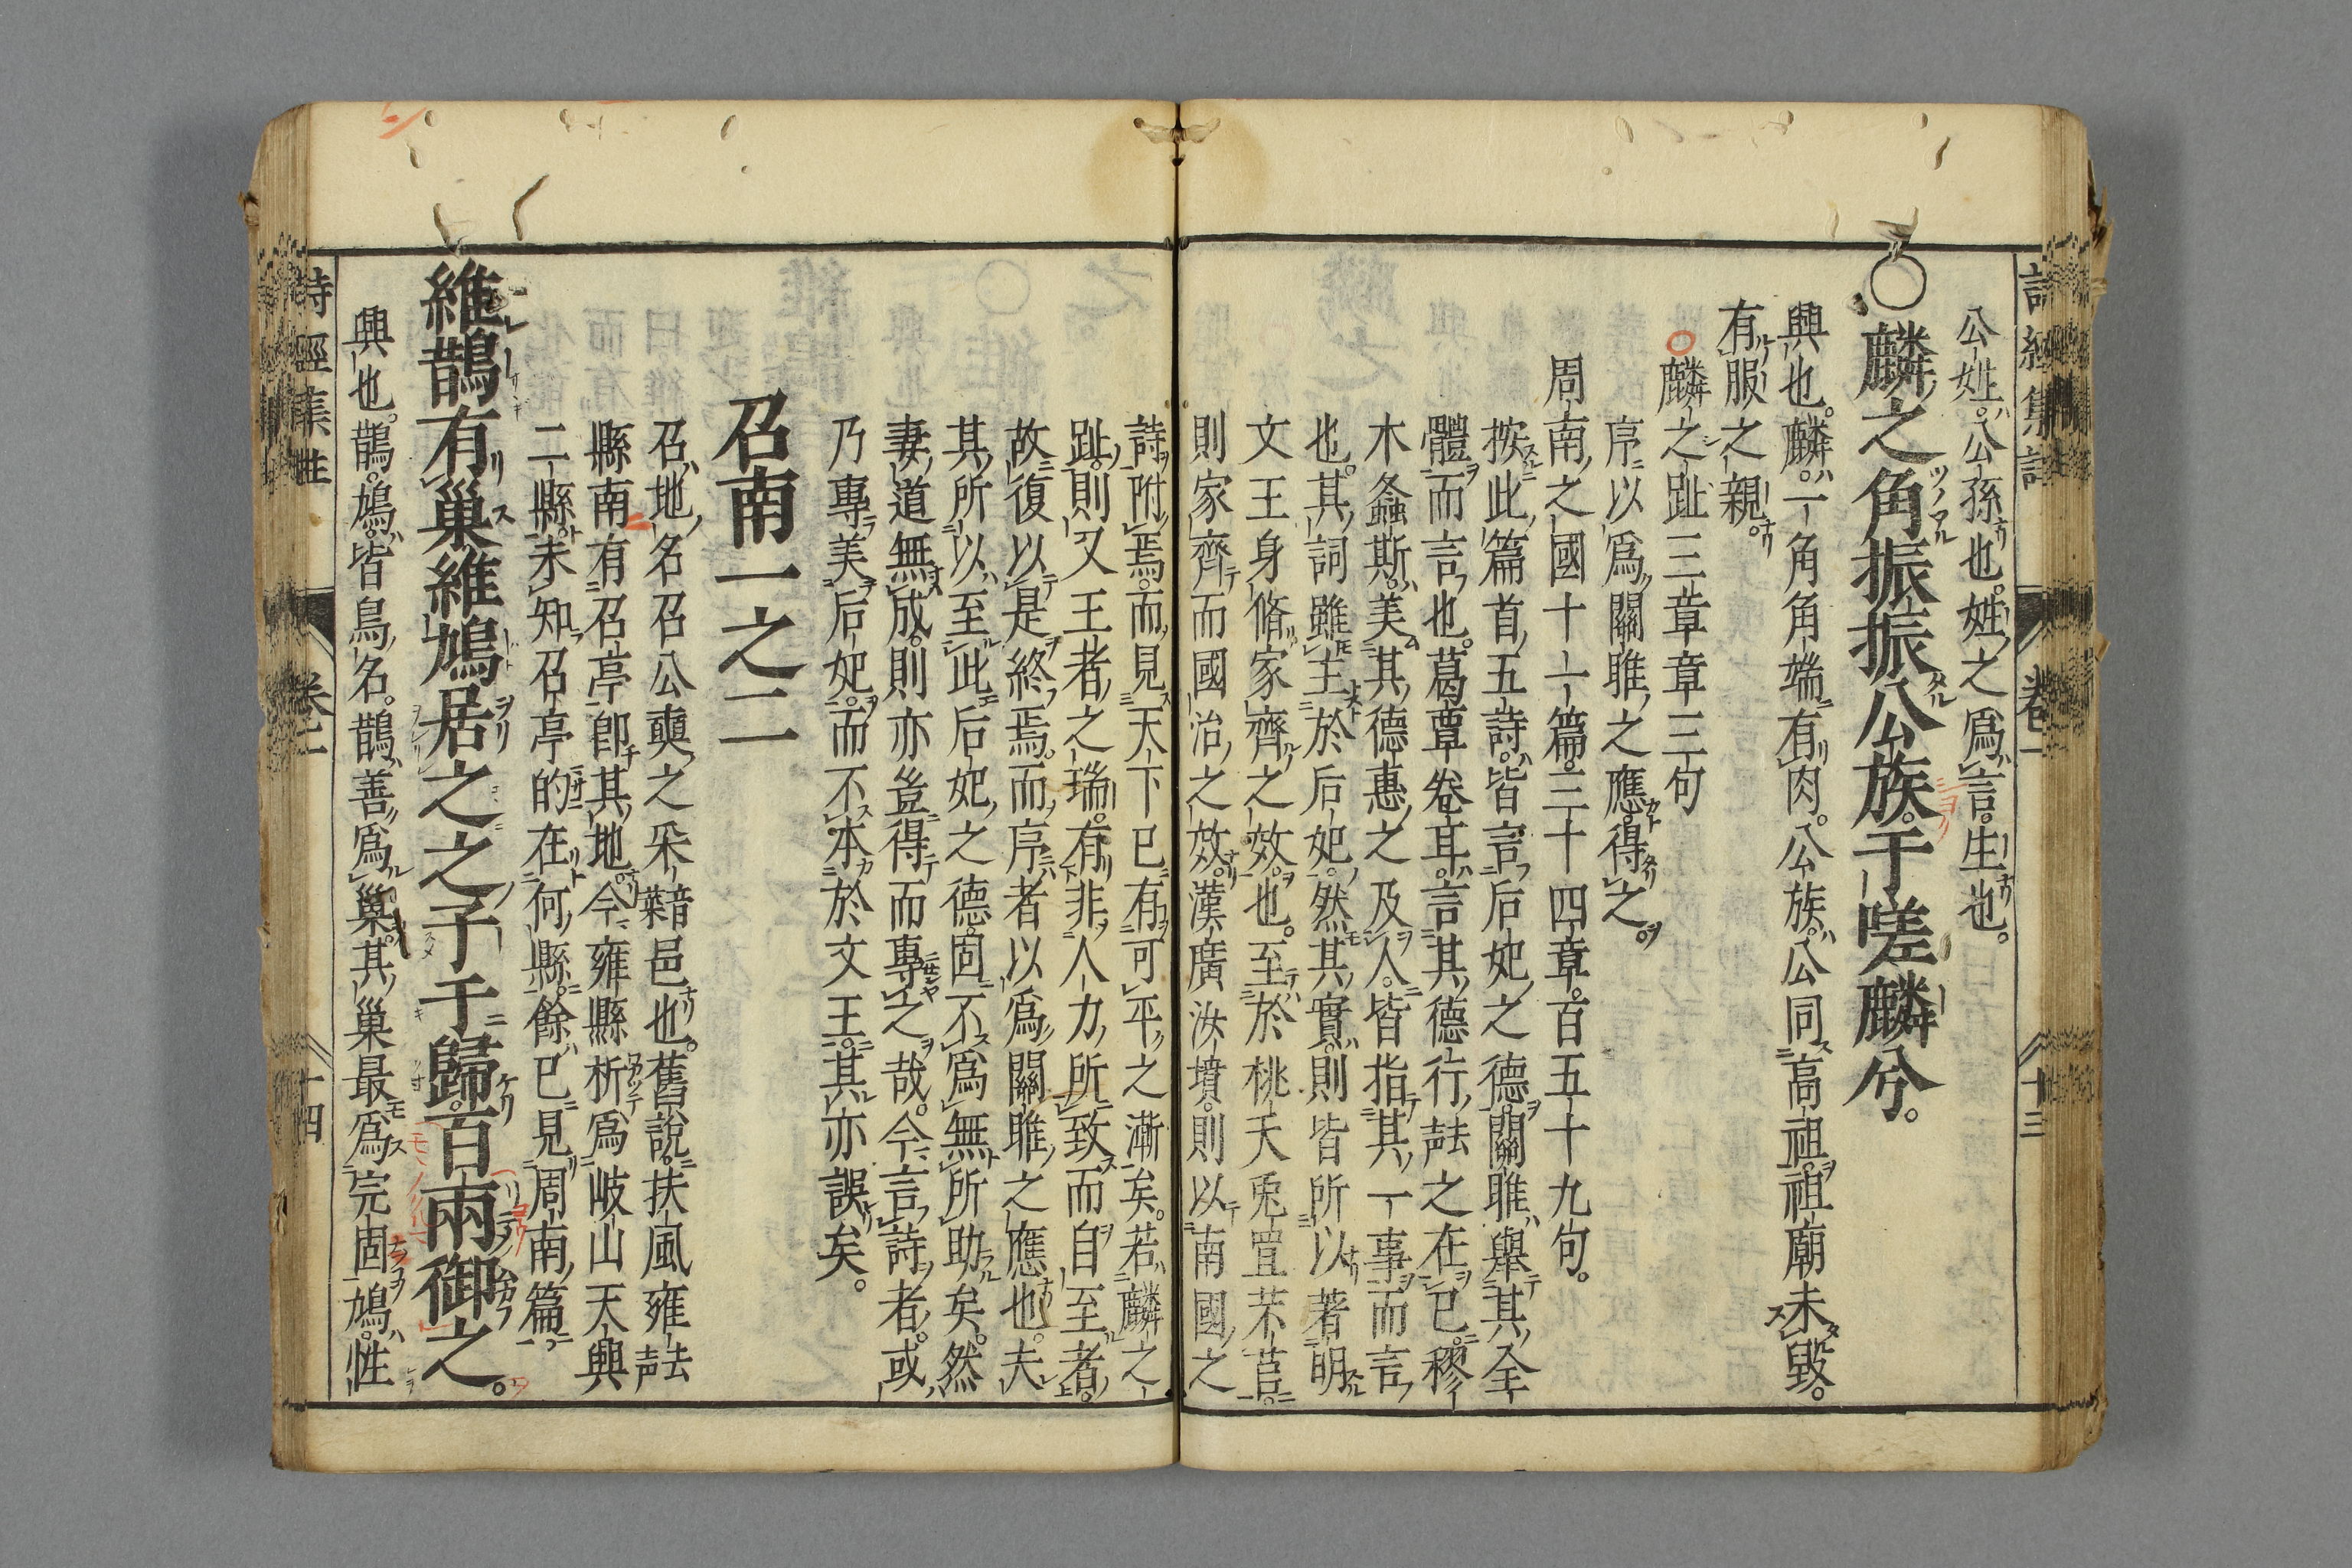 詩經集註 卷一 十三
公姓公孫也。姓之爲言生也。
○麟之角振振公族。于嗟麟兮。
興也。麟一角角端有肉。公族公同高祖祖廟未毀。
有服之親。
○麟之趾三章章三句
序以爲關雎之應得之。
周南之國十一篇三十四章百五十九句。
按此篇首五詩皆言后妃之德關雎舉其全
體而言也。葛覃卷耳言其德行声去之在己樛
木螽斯美其德惠之及人。皆指其一事而言
也。其詞雖主於后妃然其實則皆所以著明
文王身脩家齊之效也。至於桃夭兎罝芣苢
則家齊而國治之效漢廣汝墳則以南國之
詩附焉。而見天下已有可平之漸矣。若麟之
趾則又王者之瑞有非人力所致而自至者。
故復以是終焉。而序者以爲關雎之應也。夫
其所以至此后妃之德固不爲無所助矣。然
妻道無成。則亦豈得而專之哉。今言詩者或
乃專美后妃而不本於文王其亦誤矣。
召南一之二
召地名召公奭之采音菜邑也。舊說扶風雍声去
縣南有召亭卽其地今雍縣析爲岐山天興
二縣未知召亭的在何縣餘已見周南篇
維鵲有巢維鳩居之之子于歸百兩御之。
興也。鵲鳩皆鳥名。鵲善爲巢其巢最爲完固鳩性
詩經集註 卷二 十四